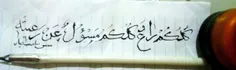 كلكم راع وكلكم مسئول عن رعيته